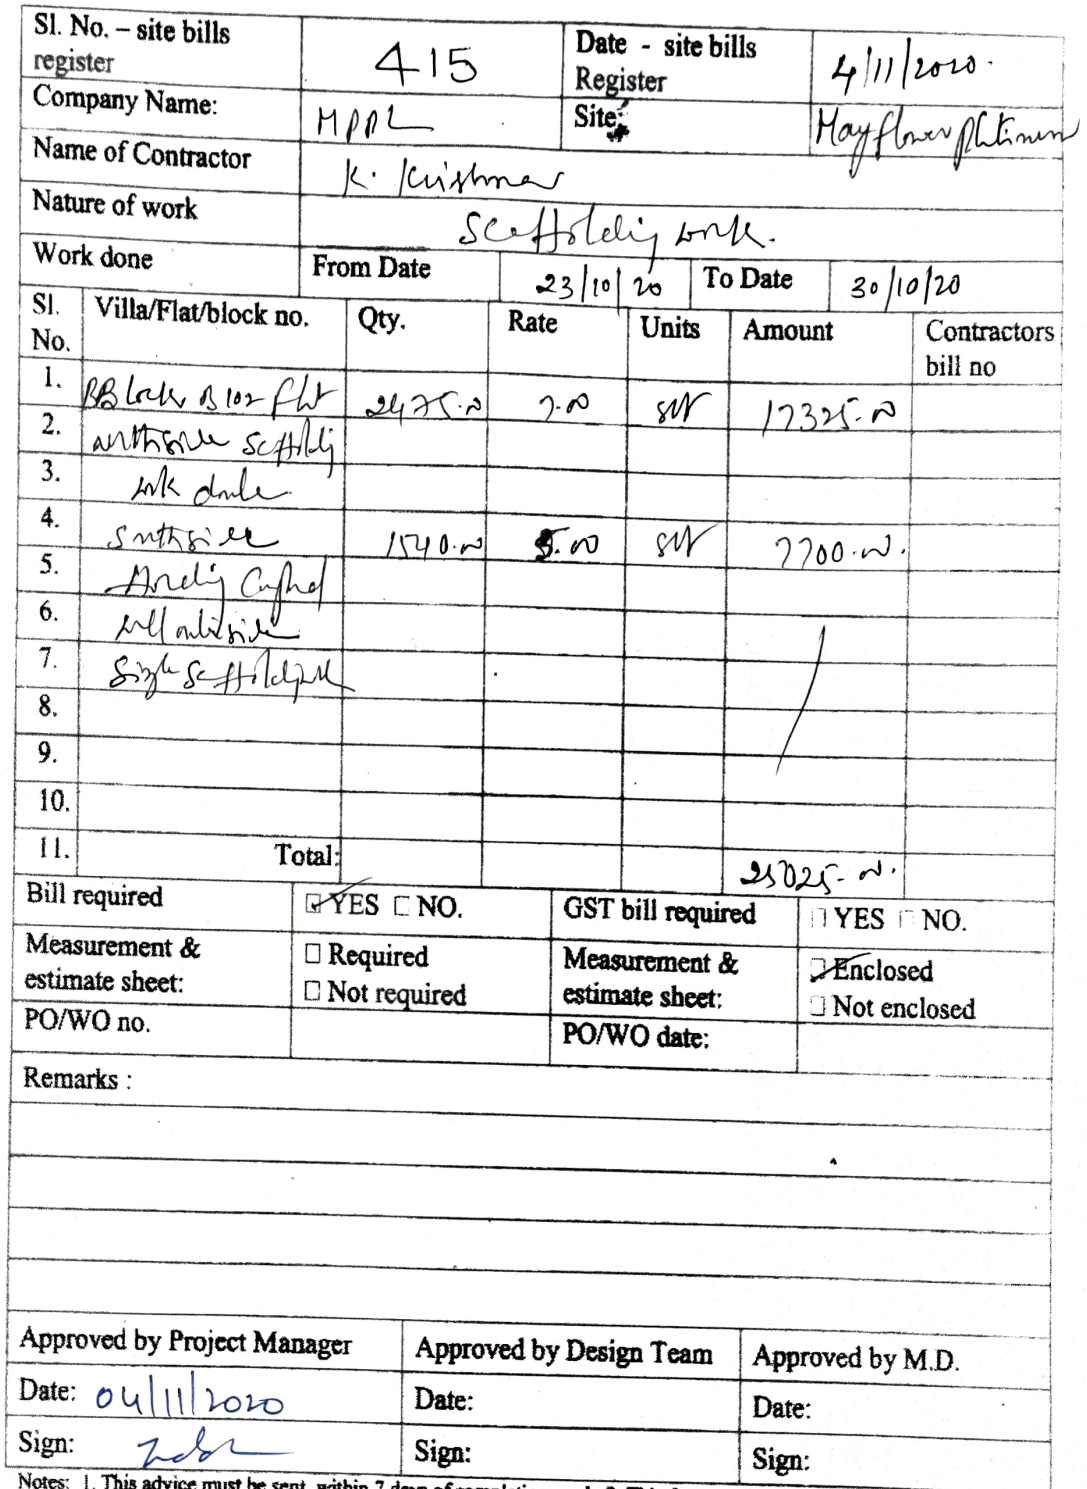 Sl. No. – site bills register 415 Date - site bills Register 4/11/2020.
Company Name: MPPL Site: Mayflower Platinum
Name of Contractor K. Krishna
Nature of work Scaffolding work.
Work done From Date 23/10/20 To Date 30/10/20
Sl. No. Villa/Flat/block no. Qty. Rate Units Amount Contractors bill no
1. B 102 flat 2475.00 7.00 sft 17325.00
2. northside scaffoldig
3. work done
4. Southside 1540.00 5.00 sft 7700.00.
5.
6. wall outside
7. Single scaffoldig
8.
9.
10.
11. Total: 25025-00.
Bill required YES NO. GST bill required YES NO.
Measurement & estimate sheet: Required Not required Measurement & estimate sheet: Enclosed Not enclosed
PO/WO no. PO/WO date:
Remarks :
Approved by Project Manager Approved by Design Team Approved by M.D.
Date: 04/11/2020 Date: Date:
Sign: Sign: Sign:
Notes: 1. This advice must be sent within 7 days of